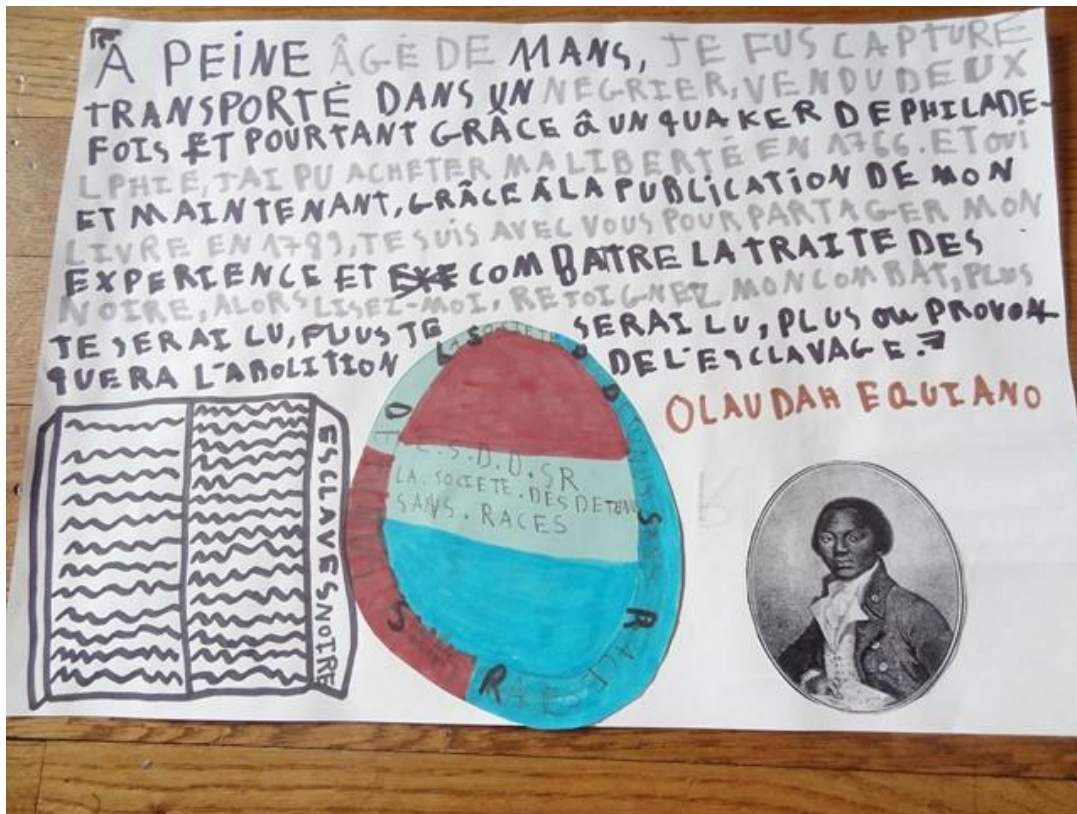 À PEINE ÂGÉ DE 11 ANS, JE FUS CAPTURÉ
TRANSPORTÉ DANS UN NEGRIER, VENDU DEUX
FOIS ET POURTANT GRÂCE â UN QUAKER DE PHILADE-
LPHIE, J'AI PU ACHETER MA LIBERTÉ EN 1766. ET OUI
ET MAINTENANT, GRÂCE À LA PUBLICATION DE MON
LIVRE EN 1789, JE SUIS AVEC VOUS POUR PARTAGER MON
EXPERIENCE ET COMBATTRE LA TRAITE DES
NOIRE, ALORS LISEZ-MOI, REJOIGNEZ MON COMBAT, PLUS
JE SERAI LU, PLUS JE SERAI LU, PLUS ou PROVO
QUERA L'ABOLITION DE L'ESCLAVAGE.
OLAUDAH EQUIANO
ESCLAVES NOIRE
LA SOCIETE DES DETENUS SANS RACES
L.S.D.D.SR
LA. SOCIETE. DES DETENUS
SANS. RACES